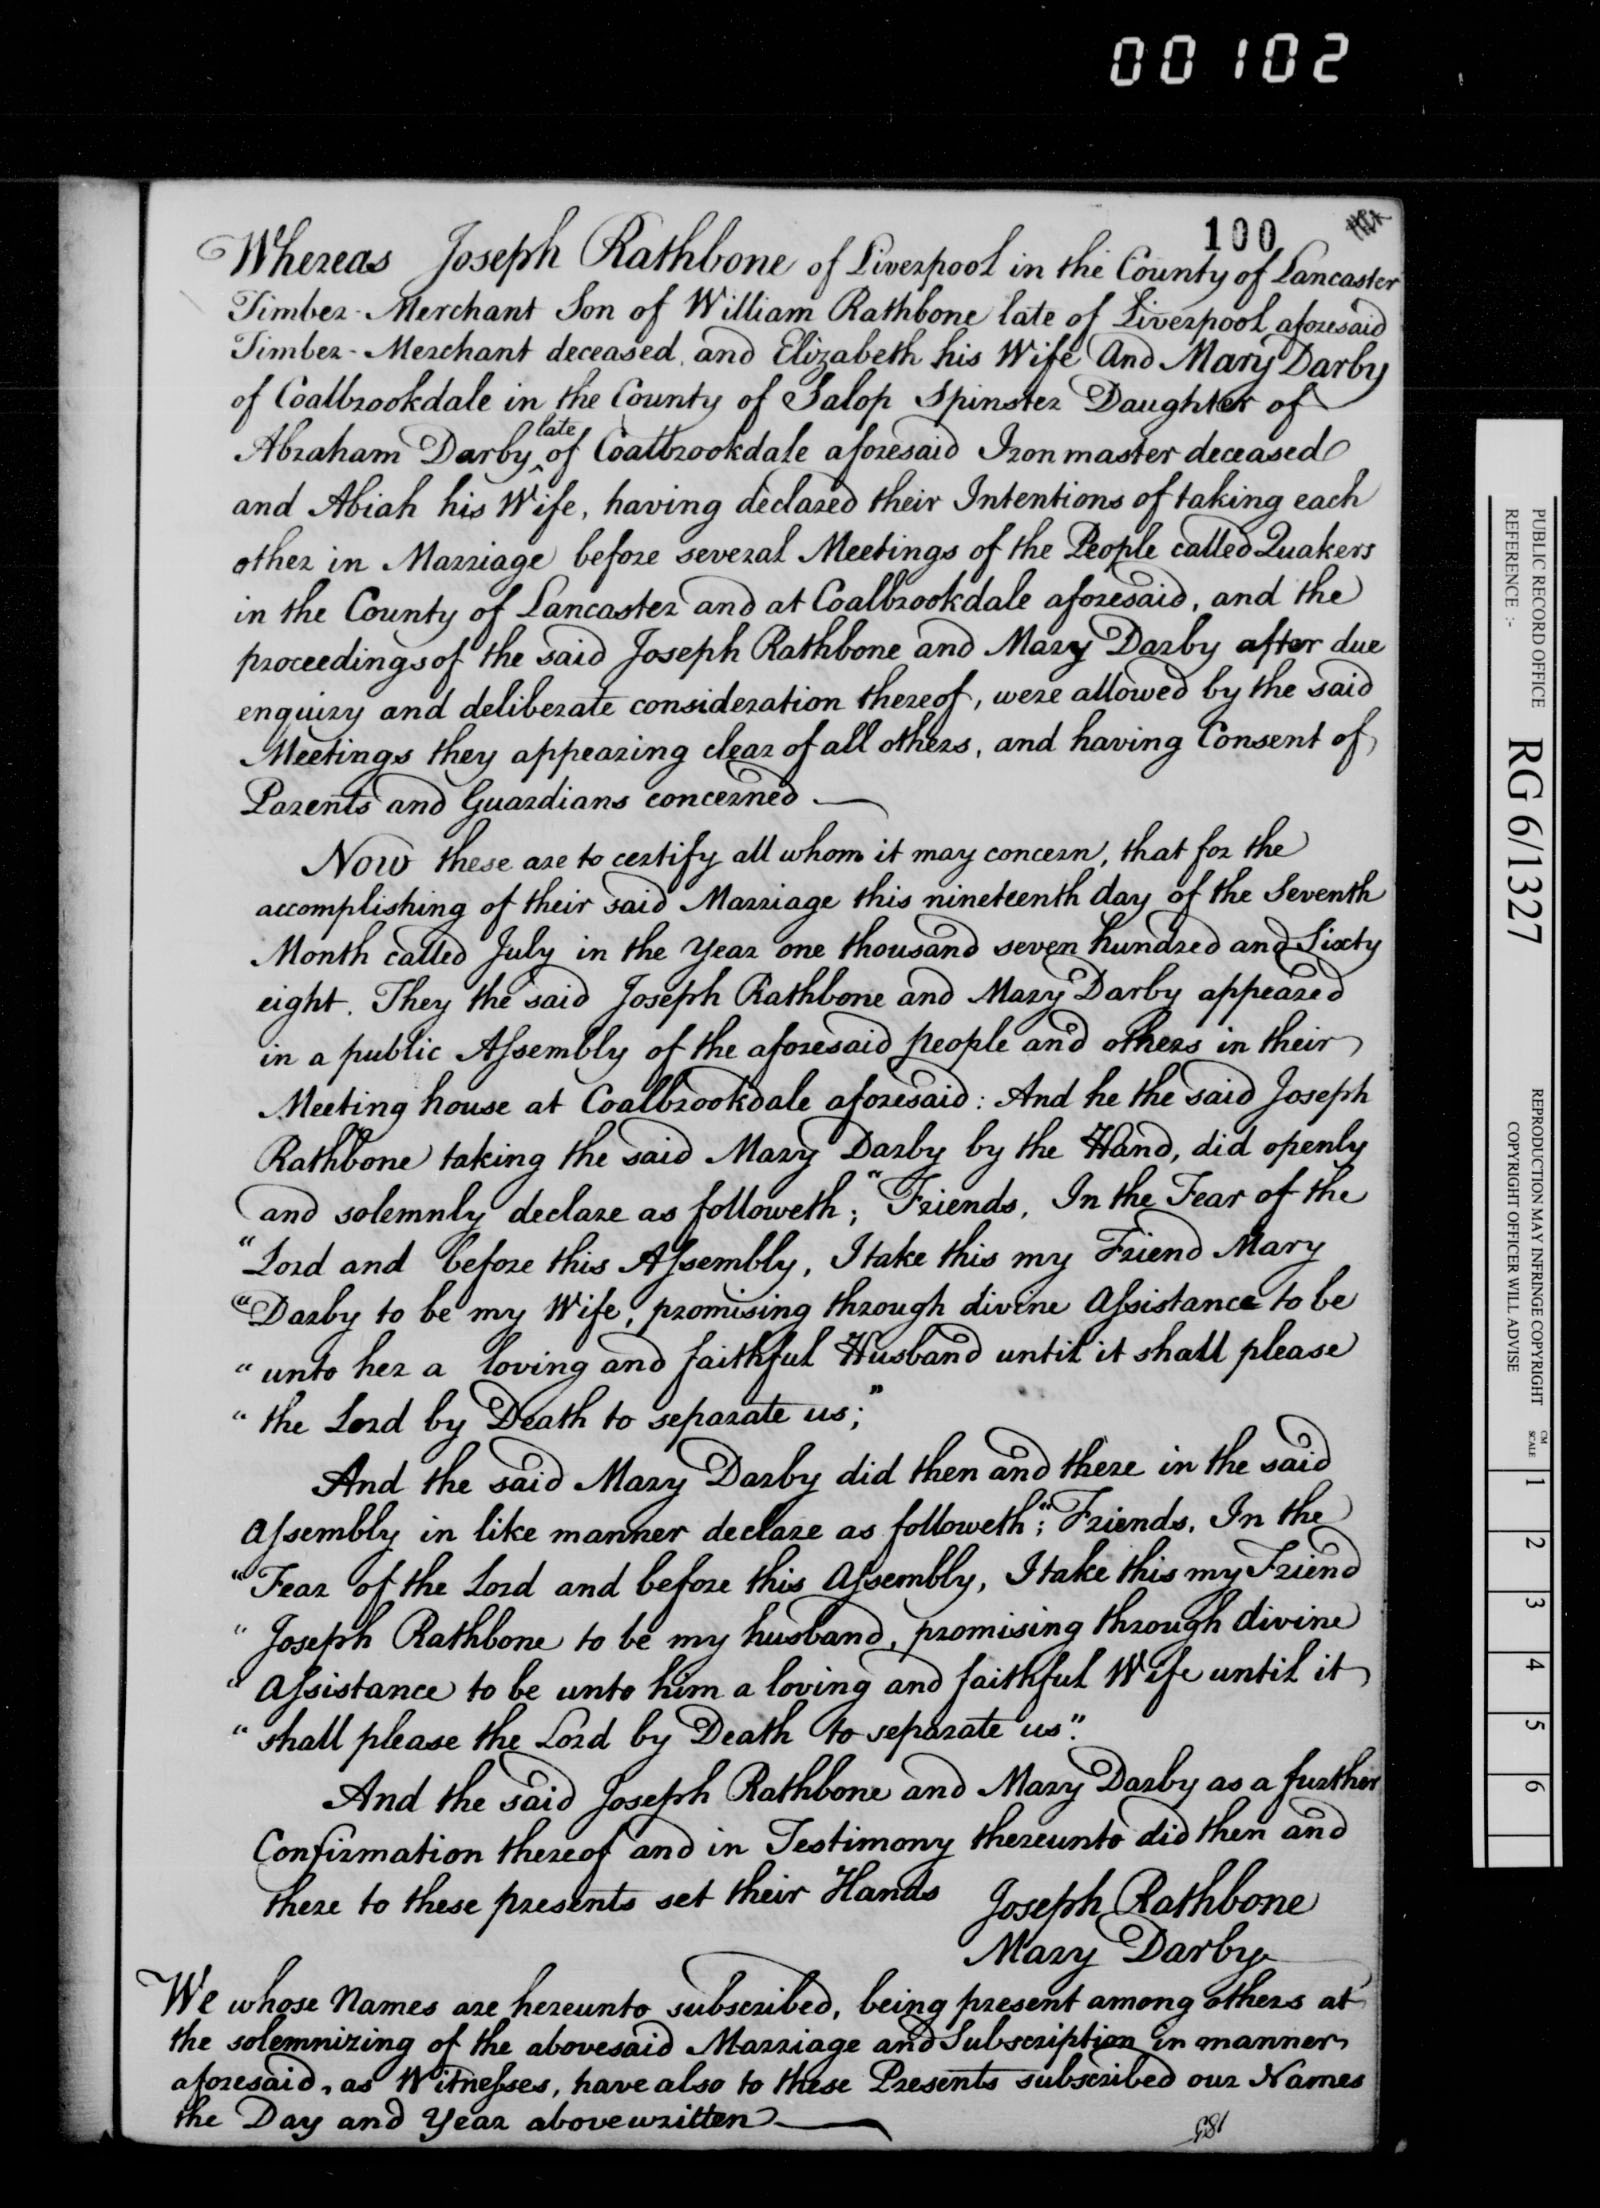 00102
100
Whereas Joseph Rathbone of Liverpool in the County of Lancaster
Timber-Merchant Son of William Rathbone late of Liverpool aforesaid
Timber-Merchant deceased and Elizabeth his Wife And Mary Darby
of Coalbrookdale in the County of Salop Spinster Daughter of
Abraham Darby late of Coalbrookdale aforesaid Ironmaster deceased
and Abiah his Wife, having declared their Intentions of taking each
other in Marriage before several Meetings of the People called Quakers
in the County of Lancaster and at Coalbrookdale aforesaid, and the
proceedings of the said Joseph Rathbone and Mary Darby after due
enquiry and deliberate consideration thereof, were allowed by the said
Meetings they appearing clear of all others, and having Consent of
Parents and Guardians concerned
Now these are to certify all whom it may concern, that for the
accomplishing of their said Marriage this nineteenth day of the Seventh
Month called July in the Year one thousand seven hundred and Sixty
eight. They the said Joseph Rathbone and Mary Darby appeared
in a public Assembly of the aforesaid people and others in their
Meeting house at Coalbrookdale aforesaid: And he the said Joseph
Rathbone taking the said Mary Darby by the Hand, did openly
and solemnly declare as followeth; "Friends, In the Fear of the
"Lord and before this Assembly, I take this my Friend Mary
"Darby to be my Wife, promising through divine Assistance to be
"unto her a loving and faithful Husband until it shall please
"the Lord by Death to separate us;"
And the said Mary Darby did then and there in the said
Assembly in like manner declare as followeth; "Friends, In the
"Fear of the Lord and before this Assembly, I take this my Friend
"Joseph Rathbone to be my husband, promising through divine
"Assistance to be unto him a loving and faithful Wife until it
"shall please the Lord by Death to separate us".
And the said Joseph Rathbone and Mary Darby as a further
Confirmation thereof and in Testimony thereunto did then and
there to these presents set their Hands
Joseph Rathbone
Mary Darby
We whose Names are hereunto subscribed, being present among others at
the solemnizing of the abovesaid Marriage and Subscription in manner
aforesaid, as Witnesses, have also to these Presents subscribed our Names
the Day and Year above written
PUBLIC RECORD OFFICE
REFERENCE :-
RG 6/1327
REPRODUCTION MAY INFRINGE COPYRIGHT
COPYRIGHT OFFICER WILL ADVISE
CM
SCALE
1
2
3
4
5
6